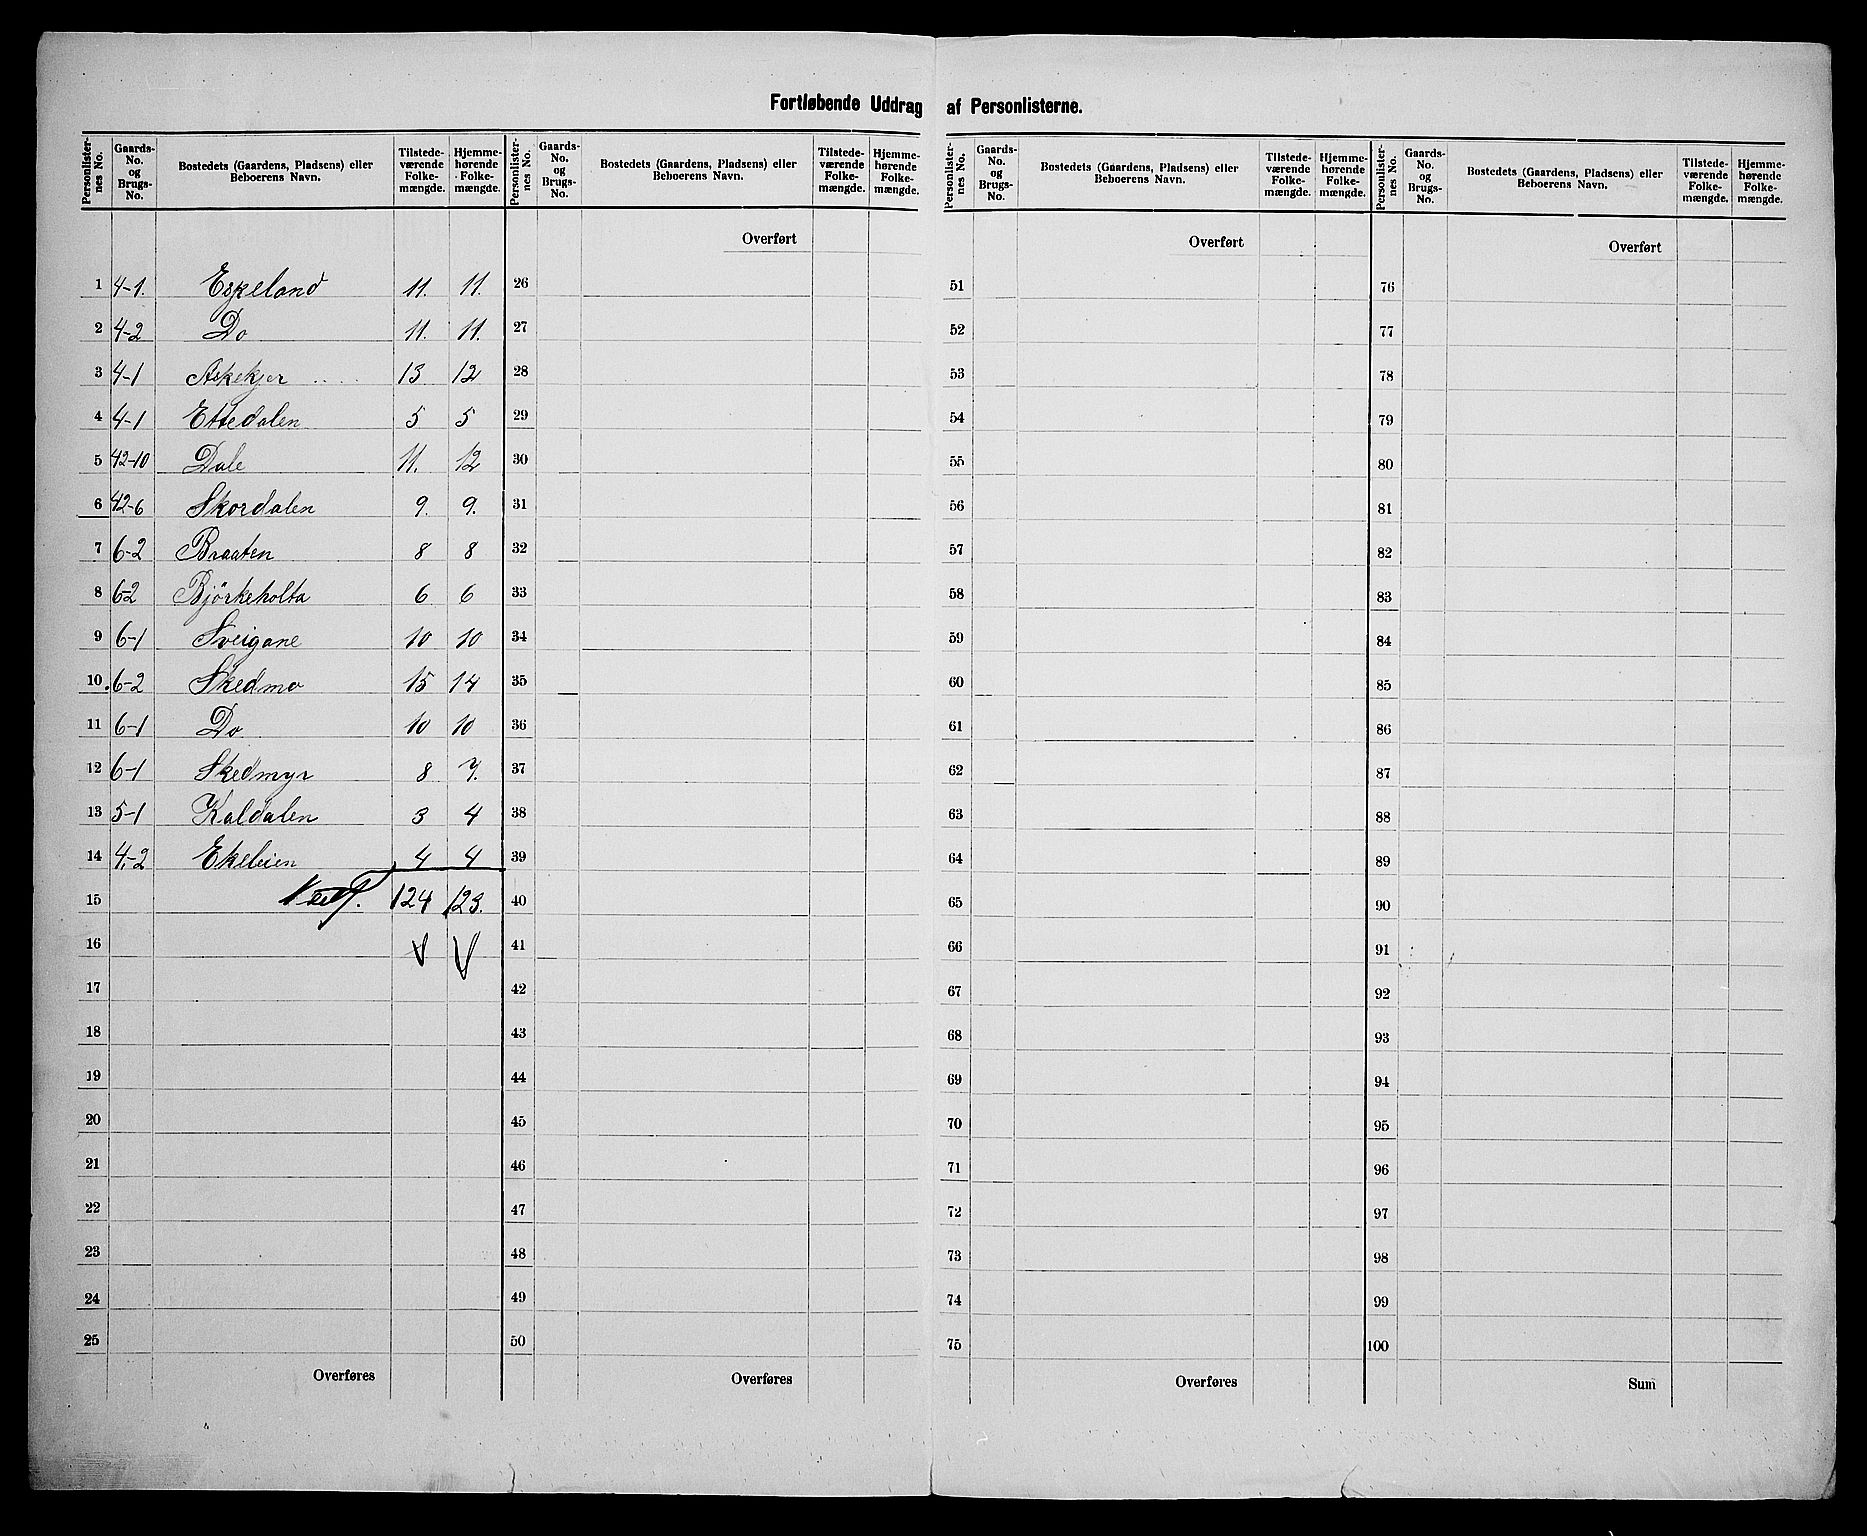 Fortløbende Uddrag af Personlisterne.
Personlister-nes No. | Gaards-No. og Brugs-No. | Bostedets (Gaardens, Pladsens) eller Beboerens Navn. | Tilstede-værende Folke-mængde. | Hjemme-hørende Folke-mængde. | Personlister-nes No. | Gaards-No. og Brugs-No. | Bostedets (Gaardens, Pladsens) eller Beboerens Navn. | Tilstede-værende Folke-mængde. | Hjemme-hørende Folke-mængde. | Personlister-nes No. | Gaards-No. og Brugs-No. | Bostedets (Gaardens, Pladsens) eller Beboerens Navn. | Tilstede-værende Folke-mængde. | Hjemme-hørende Folke-mængde. | Personlister-nes No. | Gaards-No. og Brugs-No. | Bostedets (Gaardens, Pladsens) eller Beboerens Navn. | Tilstede-værende Folke-mængde. | Hjemme-hørende Folke-mængde.
Overført Overført Overført
1 4-1. Eskeland 11. 11. 26 51 76
2 4-2 Do 11. 11. 27 52 77
3 4-1 Askekjer 13 12 28 53 78
4 4-1 Ettedalen 5 5 29 54 79
5 42-10 Dale 11. 12 30 55 80
6 42-6 Skordalen 9. 9. 31 56 81
7 6-2 Braaten 8 8 32 57 82
8 6-2 Bjørkeholta 6 6 33 58 83
9 6-1 Sveigane 10 10 34 59 84
10. 6-2 Skedmo 15 14 35 60 85
11 6-1 Do 10 10 36 61 86
12 6-1 Skedmyr 8 7. 37 62 87
13 5-1 Kaldalen 3 4 38 63 88
14 4-2 Ekeleien 4 4 39 64 89
15 124 123. 40 65 90
16 41 66 91
17 42 67 92
18 43 68 93
19 44 69 94
20 45 70 95
21 46 71 96
22 47 72 97
23 48 73 98
24 49 74 99
25 50 75 100
Overføres Overføres Overføres Sum